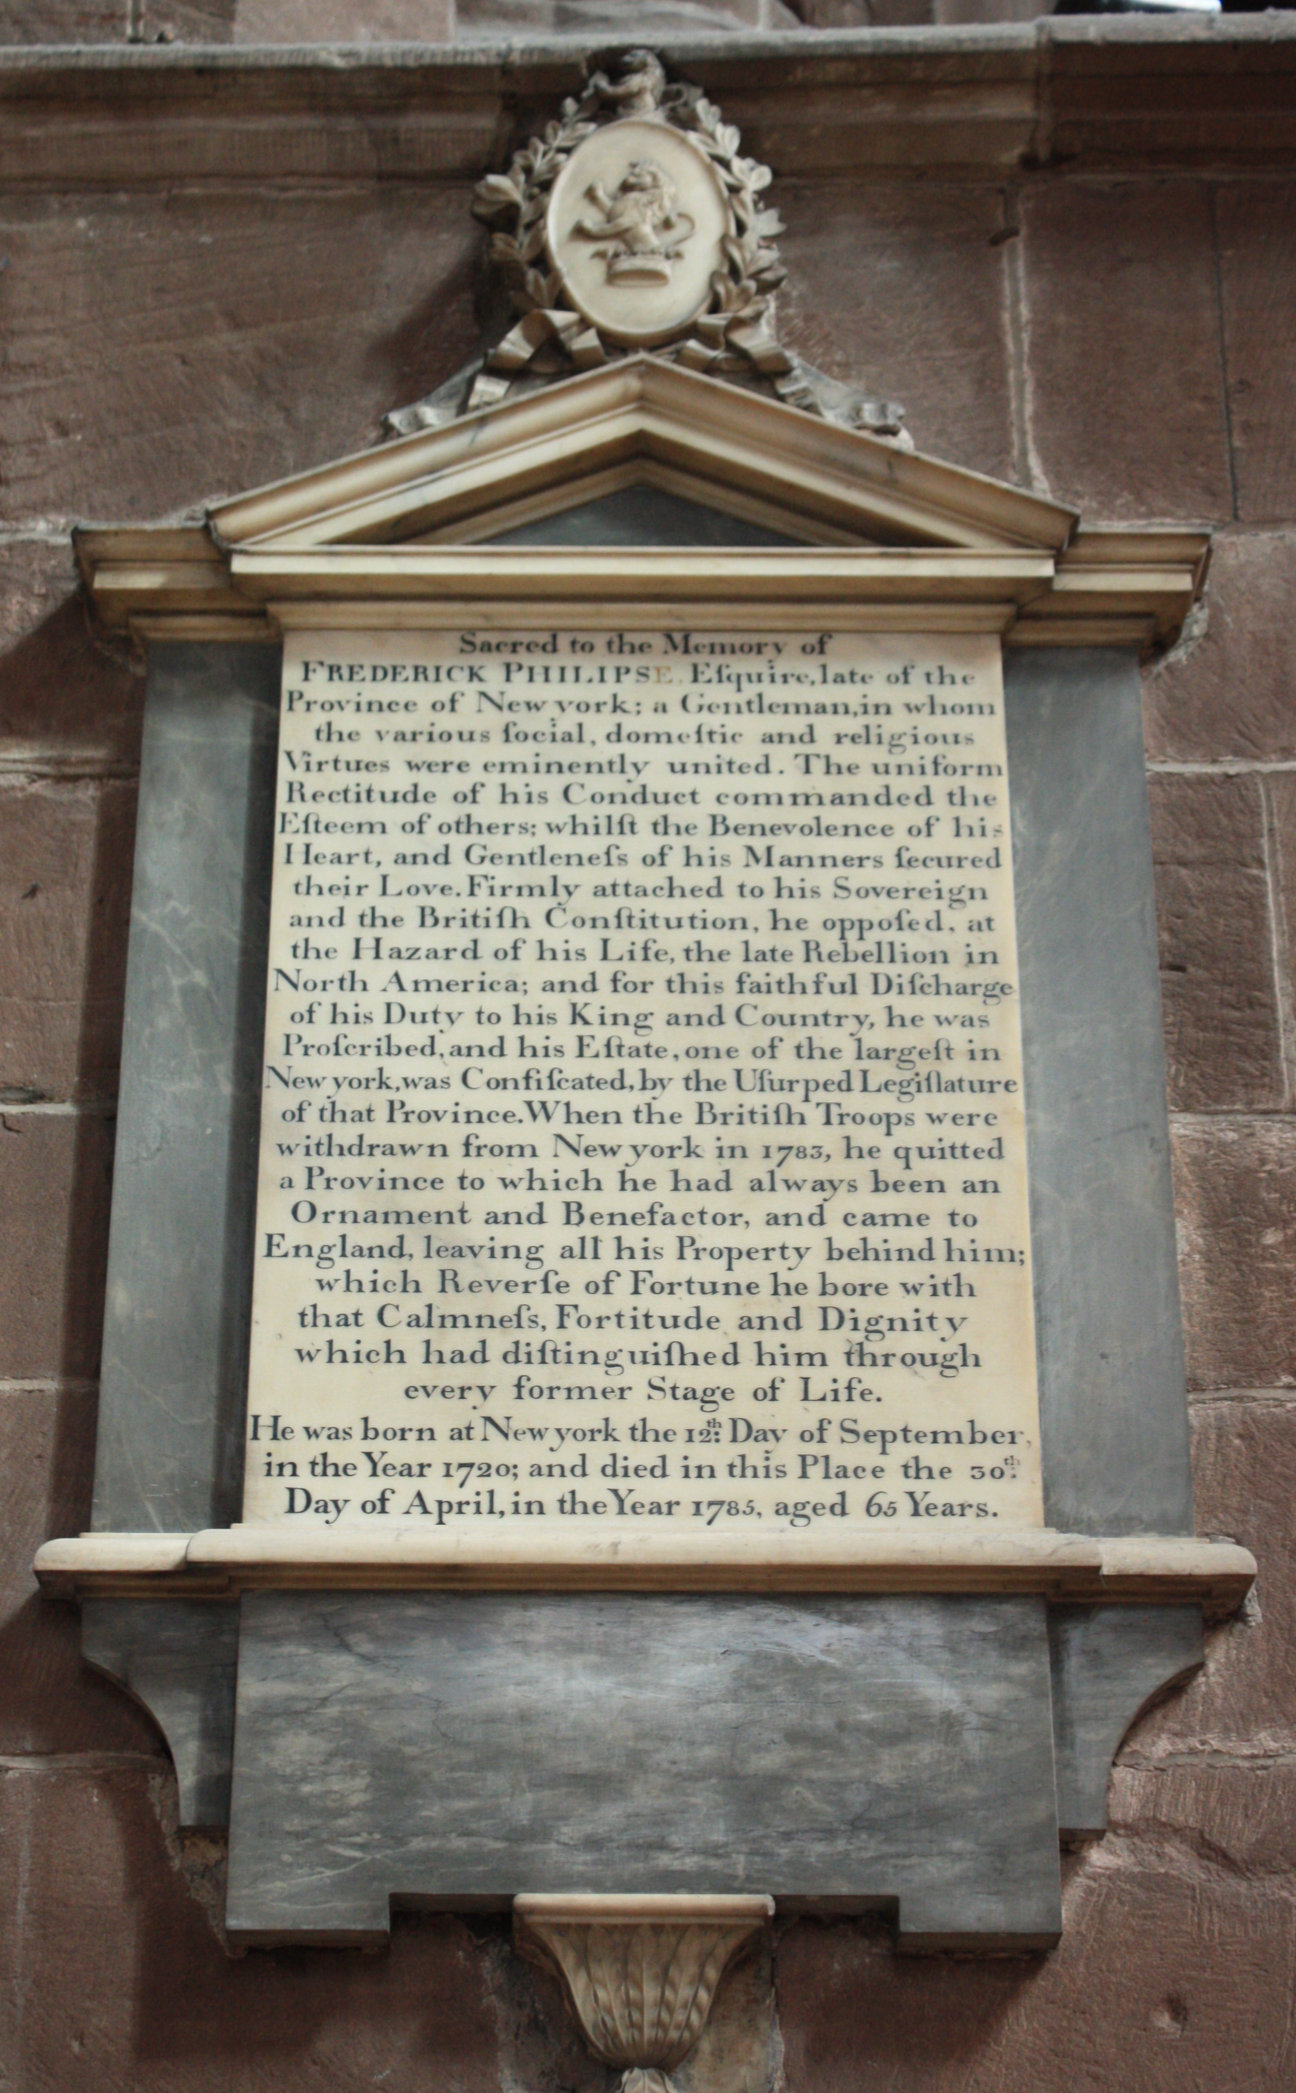 Sacred to the Memory of
FREDERICK PHILIPSE Eſquire, late of the
Province of New york; a Gentleman, in whom
the various ſocial, domeſtic and religious
Virtues were eminently united. The uniform
Rectitude of his Conduct commanded the
Eſteem of others; whilſt the Benevolence of his
Heart, and Gentleneſs of his Manners ſecured
their Love. Firmly attached to his Sovereign
and the Britiſh Conſtitution, he oppoſed, at
the Hazard of his Life, the late Rebellion in
North America; and for this faithful Diſcharge
of his Duty to his King and Country, he was
Proſcribed, and his Eſtate, one of the largeſt in
New york, was Confiſcated, by the Uſurped Legiſlature
of that Province. When the Britiſh Troops were
withdrawn from New york in 1783, he quitted
a Province to which he had always been an
Ornament and Benefactor, and came to
England, leaving all his Property behind him;
which Reverſe of Fortune he bore with
that Calmneſs, Fortitude and Dignity
which had diſtinguiſhed him through
every former Stage of Life.
He was born at New york the 12th Day of September,
in the Year 1720; and died in this Place the 30th
Day of April, in the Year 1785, aged 65 Years.